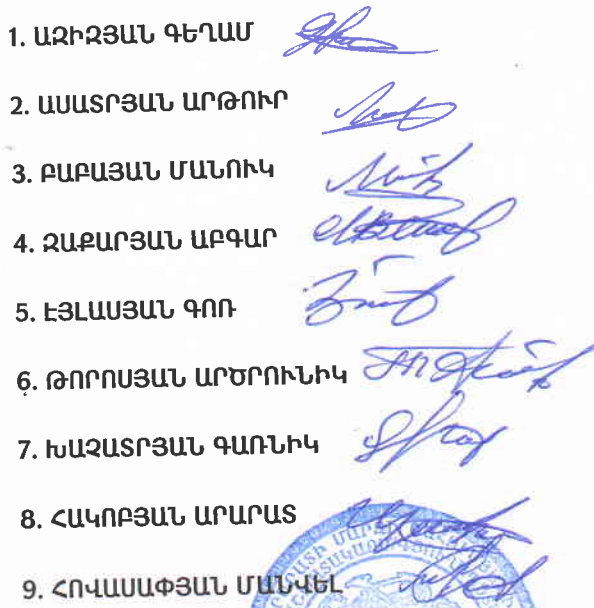 1. ԱԶԻԶՅԱՆ ԳԵՂԱՄ
2. ԱՍԱՏՐՅԱՆ ԱՐԹՈՒՐ
3. ԲԱԲԱՅԱՆ ՄԱՆՈՒԿ
4. ԶԱՔԱՐՅԱՆ ԱԲԳԱՐ
5. ԷՅԼԱՍՅԱՆ ԳՈՌ
6. ԹՈՐՈՍՅԱՆ ԱՐԾՐՈՒՆԻԿ
7. ԽԱՉԱՏՐՅԱՆ ԳԱՌՆԻԿ
8. ՀԱԿՈԲՅԱՆ ԱՐԱՐԱՏ
9. ՀՈՎԱՍԱՓՅԱՆ ՄԱՆՎԵԼ